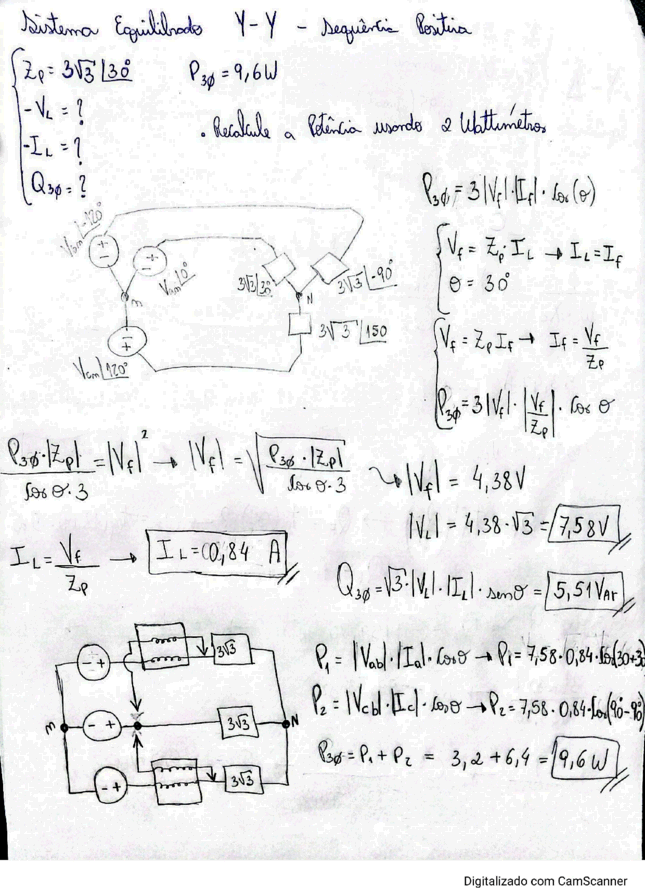 Sistema Equilibrado Y-Y - Sequência Positiva
Zp = 3√3 |30° P3ϕ = 9,6W
- VL = ?
- IL = ?
Q3ϕ = ?
. Recalcule a Potência usando 2 Wattímetros
P3ϕ = 3|Vf|·|If|·cos(θ)
Vf = Zp·IL → IL = If
θ = 30°
Vf = Zp If → If = Vf/Zp
P3ϕ = 3|Vf|·|Vf/Zp|·cos θ
Van|-120°
Van|0°
Van|120°
m
N
3√3|30°
3√3|-90°
3√3|150
P3ϕ·|Zp|/cos θ·3 = |Vf|² → |Vf| = √(P3ϕ·|Zp|/cos θ·3)
→ |Vf| = 4,38V
|VL| = 4,38·√3 = 7,58V
IL = Vf/Zp → IL = 0,84 A
Q3ϕ = √3·|VL|·|IL|·senθ = 5,51Var
3√3
m
3√3
N
3√3
P1 = |Vab|·|Ia|·cosθ → P1 = 7,58·0,84·cos(30+30
P2 = |Vcb|·|Ic|·cosθ → P2 = 7,58·0,84·cos(90°-90°)
P3ϕ = P1 + P2 = 3,2 + 6,4 = 9,6W
Digitalizado com CamScanner